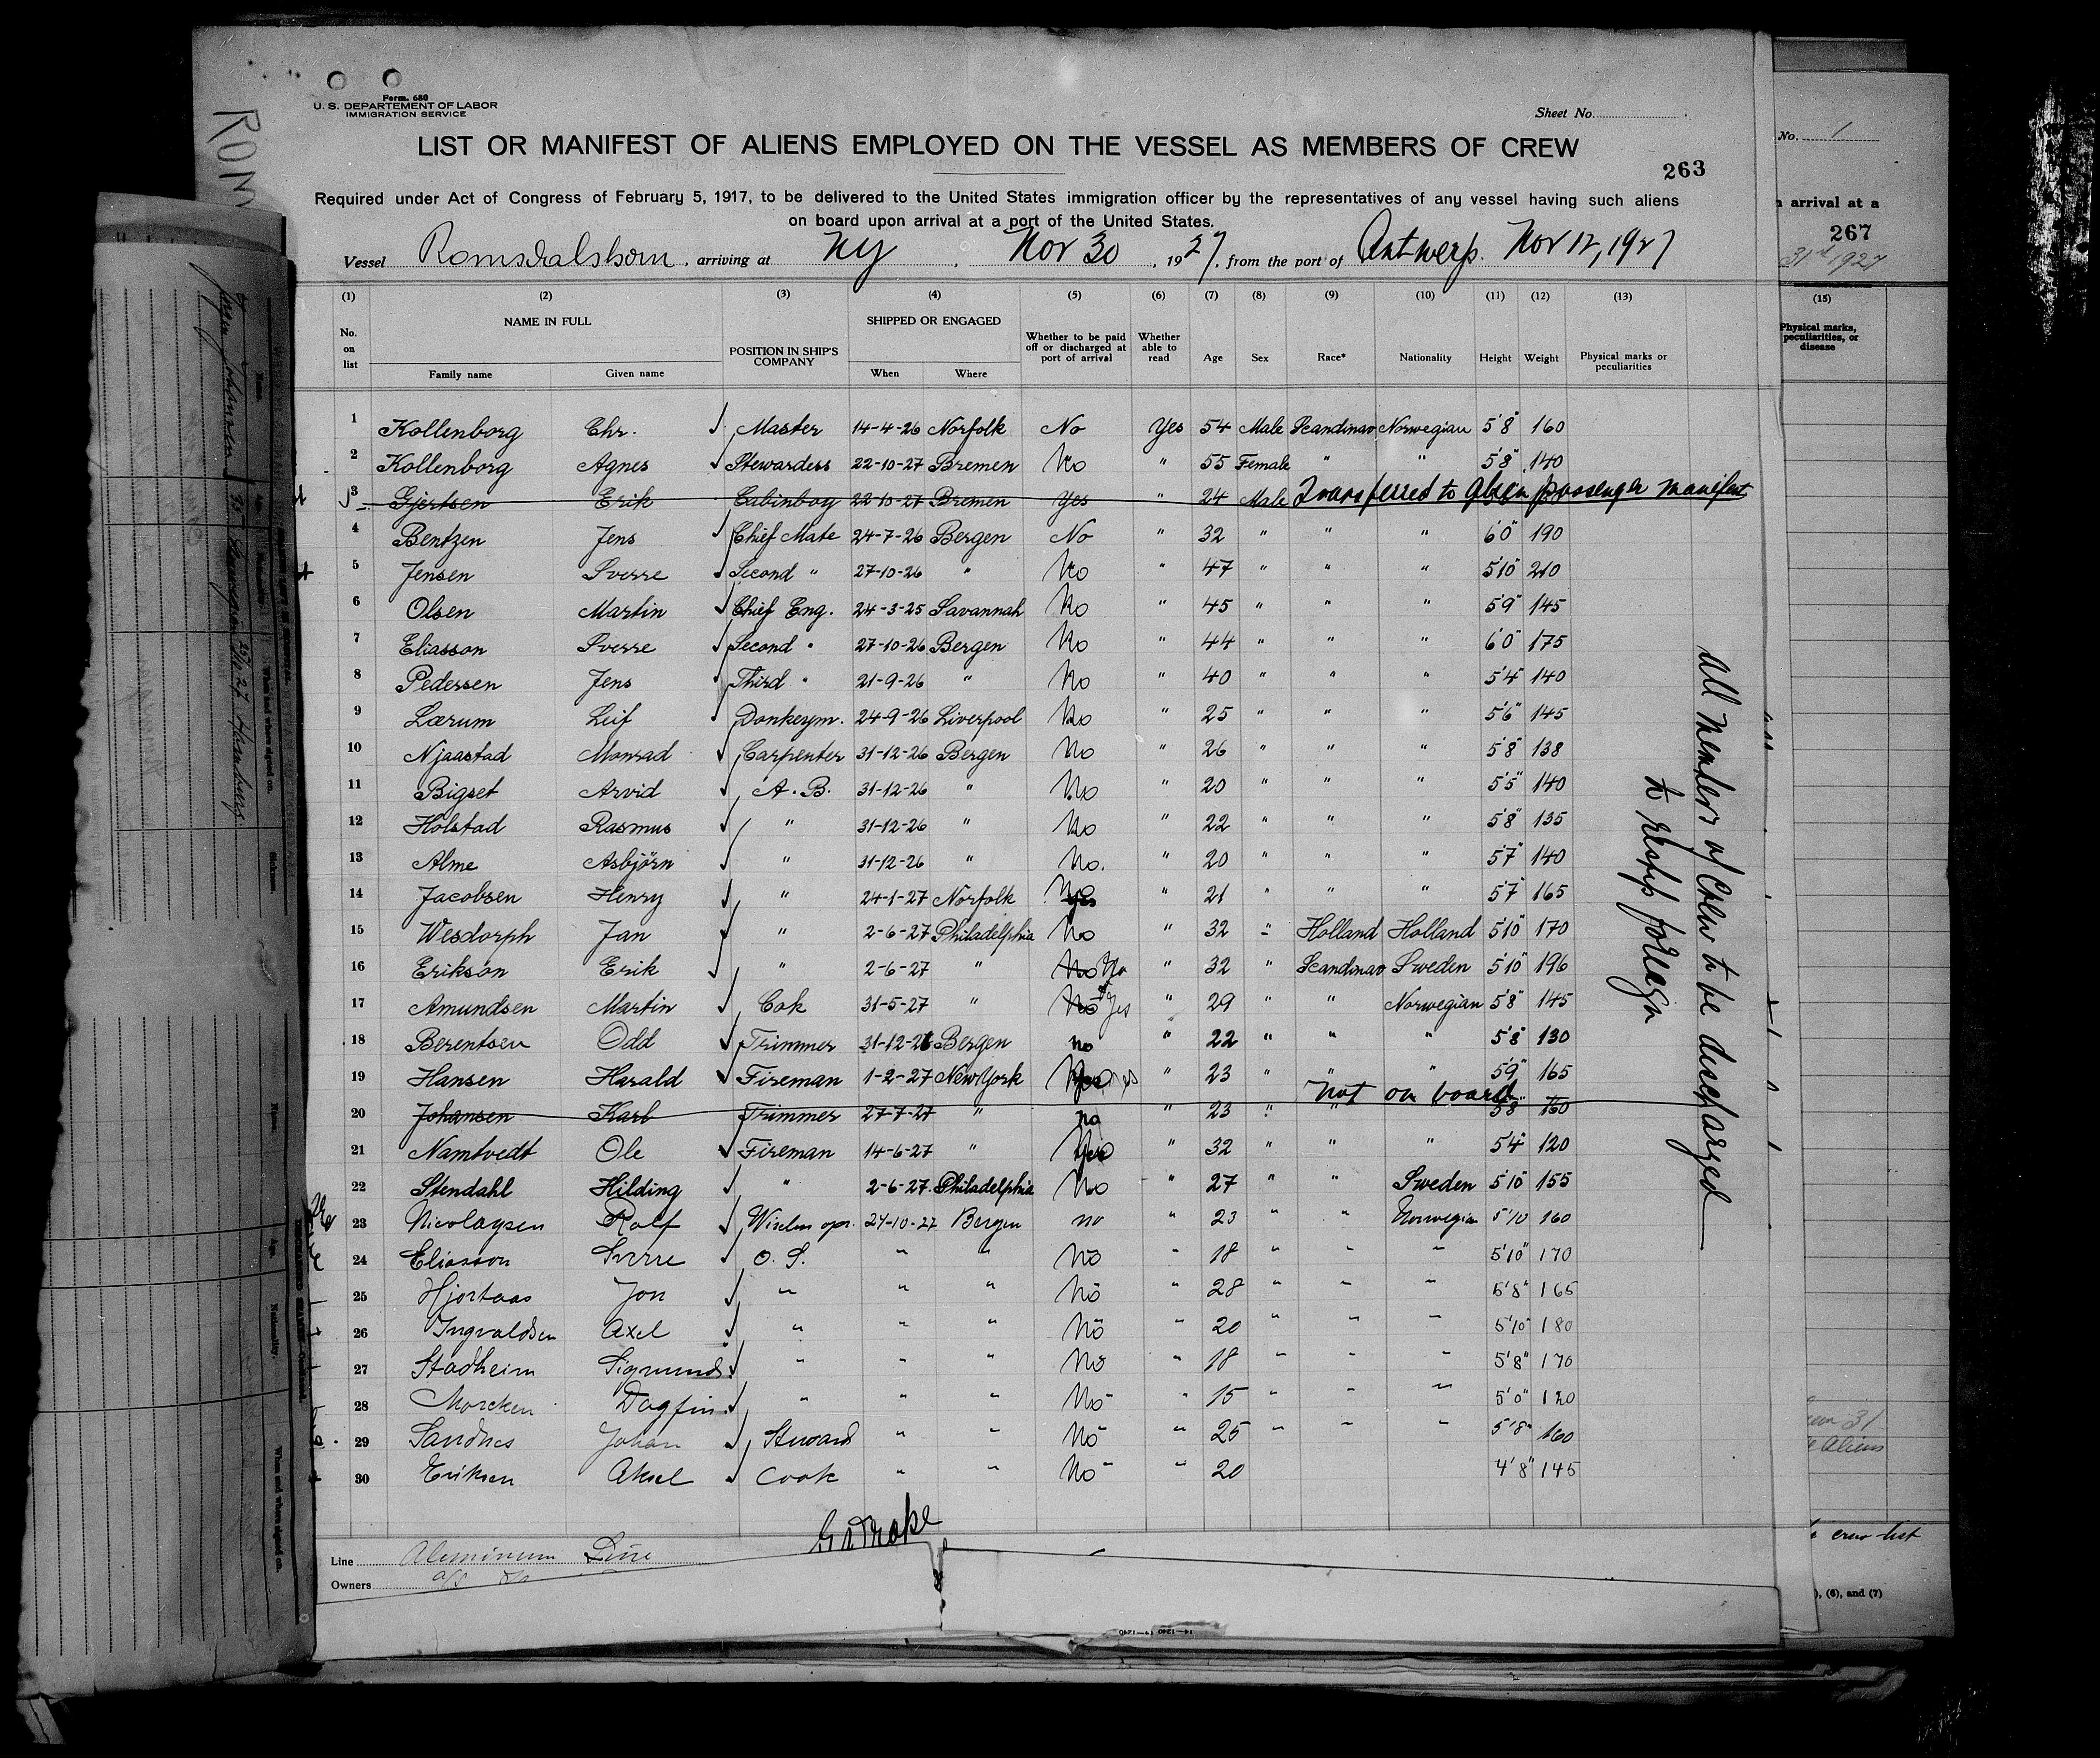 Form. 680
U. S. DEPARTEMENT OF LABOR
IMMIGRATION SERVICE
Sheet No.
LIST OR MANIFEST OF ALIENS EMPLOYED ON THE VESSEL AS MEMBERS OF CREW
263
Required under Act of Congress of February 5, 1917, to be delivered to the United States immigration officer by the representatives of any vessel having such aliens
on board upon arrival at a port of the United States.
Vessel Romsdalshorn, arriving at NY, Nov 30, 1927, from the port of Antwerp. Nov 12, 1927
(1) (2) (3) (4) (5) (6) (7) (8) (9) (10) (11) (12) (13)
No. on list NAME IN FULL Family name Given name POSITION IN SHIP'S COMPANY SHIPPED OR ENGAGED When Where Whether to be paid off or discharged at port of arrival Whether able to read Age Sex Race* Nationality Height Weight Physical marks or peculiarities
1 Kollenborg Chr. Master 14-4-26 Norfolk No Yes 54 Male Scandinav Norwegian 5'8" 160
2 Kollenborg Agnes Stewardess 22-10-27 Bremen No " 55 Female " " 5'8" 140
3 Gjertsen Erik Cabinboy 22-10-27 Bremen Yes " 24 Male Transferred to alien passenger manifest
4 Bentzen Jens Chief Mate 24-7-26 Bergen No " 32 " " " 6'0" 190
5 Jensen Sverre Second " 27-10-26 " No " 47 " " " 5'10" 210
6 Olsen Martin Chief Eng. 24-3-25 Savannah No " 45 " " " 5'9" 145
7 Eliasson Sverre Second " 27-10-26 Bergen No " 44 " " " 6'0" 175
8 Pedersen Jens Third " 21-9-26 " No " 40 " " " 5'4" 140
9 Lærum Leif Donkeym. 24-9-26 Liverpool No " 25 " " " 5'6" 145
10 Njaastad Monrad Carpenter 31-12-26 Bergen No " 26 " " " 5'8" 138
11 Bigset Arvid A.B. 31-12-26 " No " 20 " " " 5'5" 140
12 Holstad Rasmus " 31-12-26 " No " 22 " " " 5'8" 135
13 Alme Asbjörn " 31-12-26 " No. " 20 " " " 5'7" 140
14 Jacobsen Henry " 24-1-27 Norfolk No Yes " 21 " " " 5'7" 165
15 Wesdorph Jan " 2-6-27 Philadelphia No " 32 " Holland Holland 5'10" 170
16 Erikson Erik " 2-6-27 " No " 32 " Scandinav Sweden 5'10" 196
17 Amundsen Martin Cok 31-5-27 " No Yes " 29 " " Norwegian 5'8" 145
18 Berentsen Odd Trimmer 31-12-26 Bergen no " 22 " " " 5'8" 130
19 Hansen Harald Fireman 1-2-27 New York " 23 " " " 5'9" 165
not on board
20 Johansen Karl Trimmer 27-7-27 " no " 23 " " 5'8" 160
21 Namtvedt Ole Fireman 14-6-27 " " 32 " " " 5'4" 120
22 Stendahl Hilding " 2-6-27 Philadelphia No " 27 " " Sweden 5'10" 155
23 Nicolaysen Rolf 24-10-27 Bergen no " 23 " " Norwegian 5'10 160
24 Eliasson Sverre O. S. " " No " 18 " " " 5'10" 170
25 Hjortaas Jon " " " No " 28 " " " 5'8" 165
26 Ingvaldsen Axel " " " No " 20 " " " 5'10" 180
27 Stadheim Sigmund " " " No " 18 " " " 5'8" 170
28 Morcken Dagfin " " " No " 15 " " " 5'0" 120
29 Sandnes Johan Steward " " No " 25 " " " 5'8" 160
30 Eriksen Aksel Cook " " No " 20 4'8" 145
all members of Crew to be discharged
to reship foreign
Line Aluminum Line
Owners
14—1240
No. 1
arrival at a
267
31st 1927
(15)
Physical marks, peculiarities, or disease
Aliens
crew list
, (6), and (7)